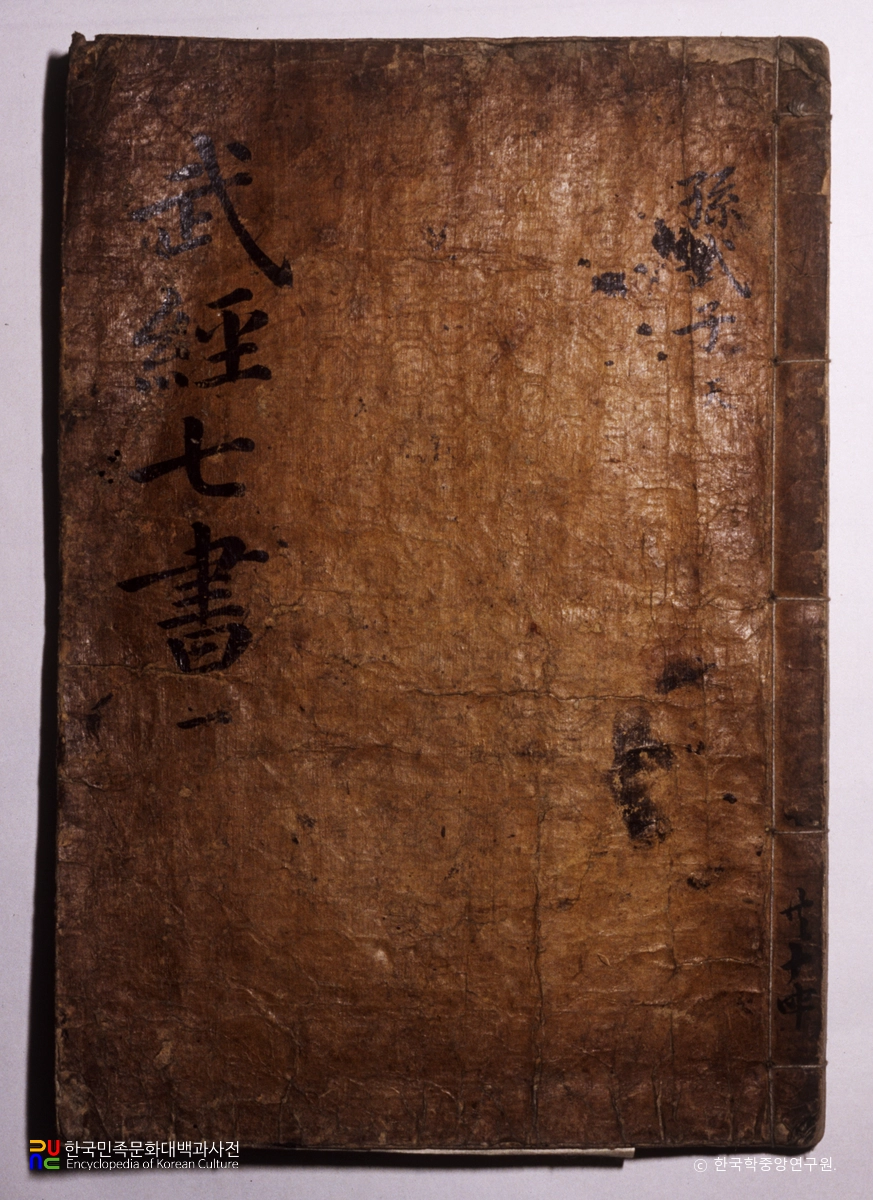 孫武子
武經七書 一
한국민족문화대백과사전
Encyclopedia of Korean Culture
© 한국학중앙연구원.